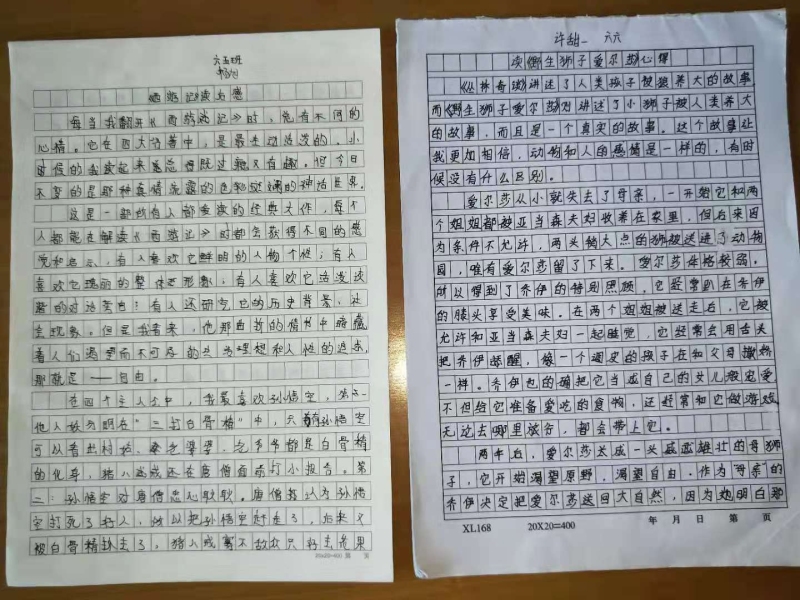 六五班
西游记读后感
每当我翻开《西游记》时,总有不同的
心情。它在四大名著中,是最生动活泼的。小
时候的我读起来总觉得既过瘾又有趣。但今日
不变的是那种真情流露的色彩斑斓的神话世界。
这是一部所有人都爱读的经典大作,每个
人都能在解读《西游记》时都会获得不同的感
觉和启示,有人喜欢它鲜明的人物个性;有人
喜欢它瑰丽的整体形象,有人喜欢它活泼诙
谐的对话旁白;有人还研究它的历史背景,社
会现象。但是我看来,他那曲折的情节中暗藏
着人们渴望而不可及的理想和人性的追求,
那就是——自由。
在四个主人公中,我最喜欢孙悟空,第一
他人妖分明在"三打白骨精"中,只有孙悟空
可以看出村姑、老婆婆、老爷爷都是白骨精
的化身,猪八戒还在唐僧面前打小报告。第
二:孙悟空对唐僧忠心耿耿。唐僧误认为孙悟
空打死了好人,所以把孙悟空赶走了,后来又
被白骨精抓走了。猪八戒寡不敌众只好去花果
许甜一 六六
读《野生狮子爱尔莎》心得
《丛林奇谈》讲述了人类孩子被狼养大的故事
而《野生狮子爱尔莎》则讲述了小狮子被人类养大
的故事,而且是一个真实的故事。这个故事让
我更加相信,动物和人的感情是一样的,有时
候没有什么区别。
爱尔莎从小就失去了母亲,一开始它和两
个姐姐都被亚当森夫妇收养在家里,但后来因
为条件不允许,两头稍大点的狮被送进了动物
园,唯有爱尔莎留了下来。爱尔莎体格较弱。
所以得到了乔伊的特别照顾,它经常趴在乔伊
的膝头享受美味。在两个姐姐被送走后,它被
允许和亚当森夫妇一起睡觉,它经常会用舌头
把乔伊舔醒,像一个调皮的孩子在和父母撒娇
一样。乔伊也的确把它当成自己的女儿般宠爱,
不但给它准备爱吃的食物,还经常和它做游戏
无论去哪里旅行,都会带上它。
两年后,爱尔莎长成一头威武雄壮的母狮
子,它开始渴望原野,渴望自由。作为"母亲"的
乔伊决定把爱尔莎送回大自然,因为她明白那
20X20=400 页
XL168 20X20=400 年 月 日 第 页